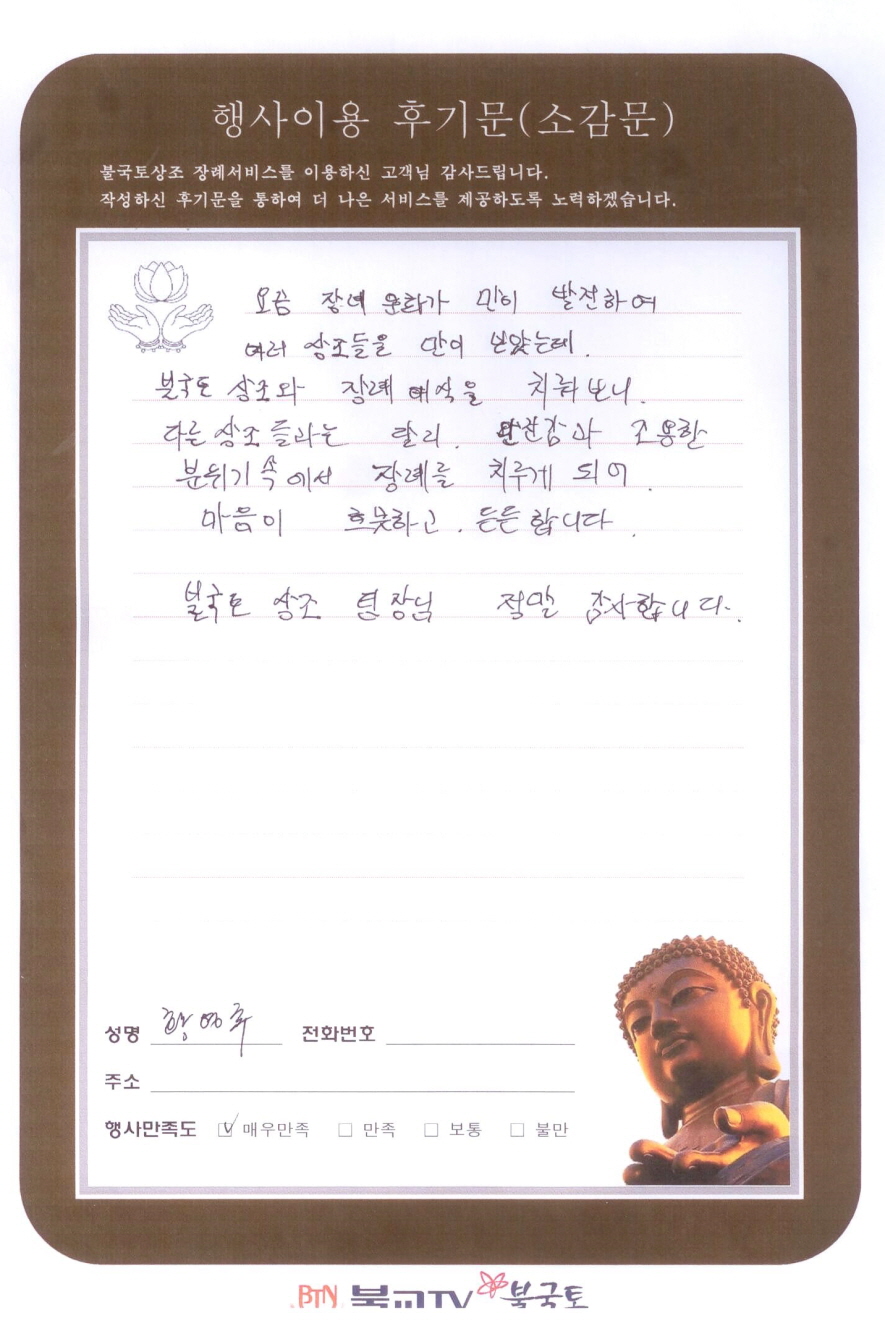 행사이용 후기문(소감문)
불국토상조 장례서비스를 이용하신 고객님 감사드립니다.
작성하신 후기문을 통하여 더 나은 서비스를 제공하도록 노력하겠습니다.
요즘 장녜 문화가 만이 발전하여
여러 상조들을 만이 보았는데.
불국토 상조와 장례 예식을 치뤄보니.
다른 상조들과는 달리. 안전감과 조용한
분위기 속에서 장례를 치루게 되어.
마음이 흐뭇하고. 든든합니다.
불국토 상조 팀장님 정말 감사합니다.
성명 전화번호
주소
행사만족도 매우만족 만족 보통 불만
BTN 불교TV 불국토